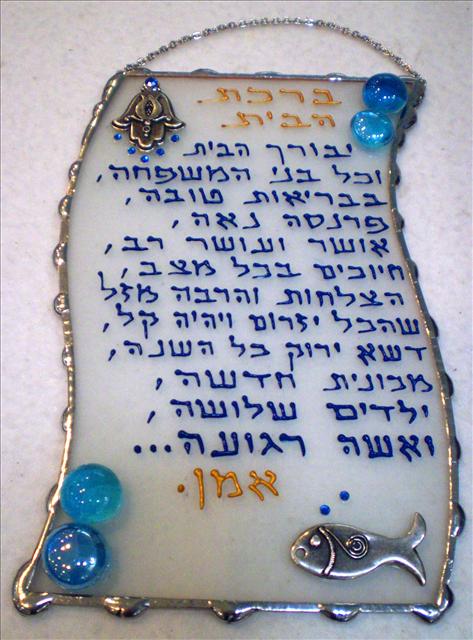 ברכת
הבית.
יבורך הבית
וכל בני המשפחה,
בבריאות טובה,
פרנסה נאה,
אושר ועושר רב,
חיוכים בכל מצב,
הצלחות והרבה מזל
שהכל יזרום ויהיה קל,
דשא ירוק כל השנה,
מכונית חדשה,
ילדים שלושה,
ואשה רגועה...
אמן.